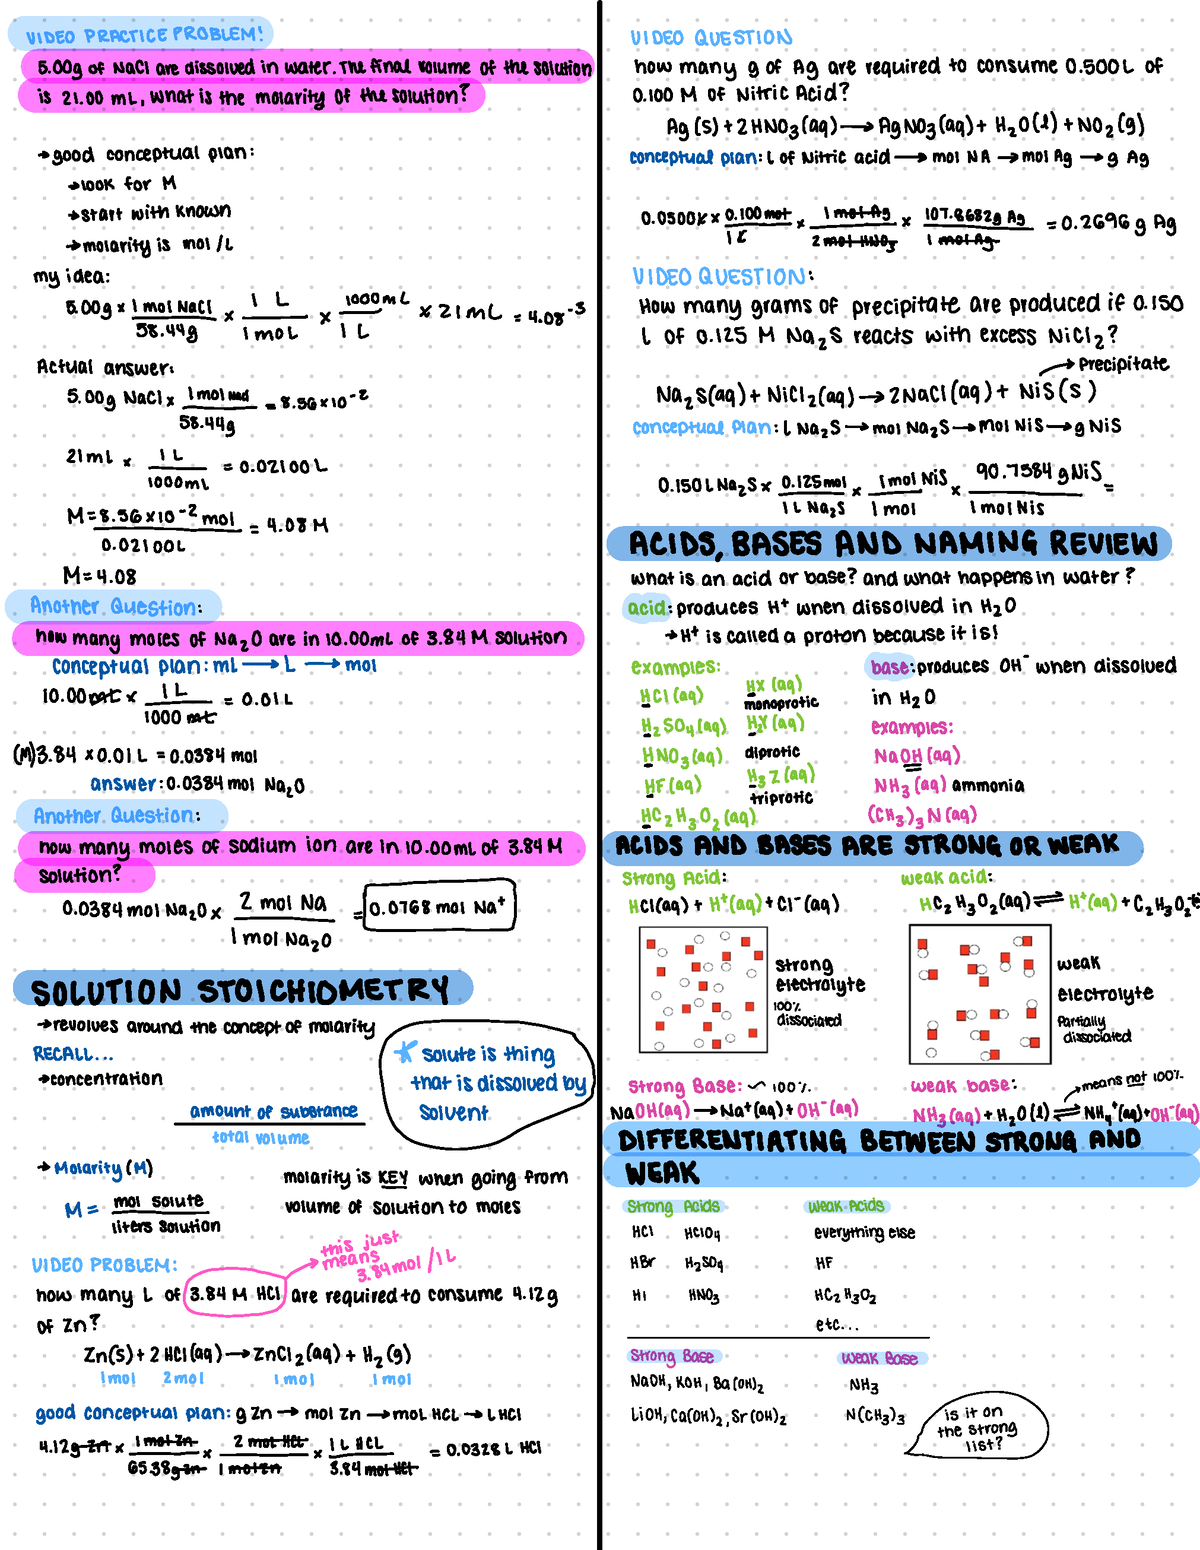 VIDEO PRACTICE PROBLEM!
5.00g of NaCl are dissolved in water. The final volume of the solution
is 21.00 mL, what is the molarity of the solution?
→good conceptual plan:
→look for M
→start with known
→molarity is mol/L
my idea:
5.00g × 1 mol NaCl/58.44g × 1 L/1 mol × 1000mL/1 L × 21mL = 4.08⁻³
Actual answer:
5.00g NaCl × 1 mol NaCl/58.44g = 8.56×10⁻²
21mL × 1L/1000mL = 0.02100L
M = 8.56×10⁻² mol/0.02100L = 4.08 M
M=4.08
Another Question:
how many moles of Na₂O are in 10.00mL of 3.84 M solution
conceptual plan: mL → L → mol
10.00mL × 1L/1000 mL = 0.01L
(M)3.84 ×0.01L = 0.0384 mol
answer: 0.0384 mol Na₂O
Another Question:
how many moles of sodium ion are in 10.00mL of 3.84M
solution?
0.0384 mol Na₂O × 2 mol Na/1 mol Na₂O = 0.0768 mol Na⁺
SOLUTION STOICHIOMETRY
→revolves around the concept of molarity
RECALL...
→concentration
amount of substance
total volume
* solute is thing
that is dissolved by
solvent
→ Molarity (M)
M = mol solute/liters solution
molarity is KEY when going from
volume of solution to moles
VIDEO PROBLEM:
this just
means
3.84mol/1L
how many L of 3.84 M HCl are required to consume 4.12g
of Zn?
Zn(s)+2HCl(aq)→ZnCl₂(aq)+H₂(g)
1mol 2mol 1mol 1mol
good conceptual plan: g Zn → mol Zn → mol HCL → LHCl
4.12g Zn × 1 mol Zn/65.38g Zn × 2 mol HCL/1 mol Zn × 1L HCL/3.84 mol HCl = 0.0328L HCl
VIDEO QUESTION
how many g of Ag are required to consume 0.500L of
0.100 M of Nitric Acid?
Ag(s)+2HNO₃(aq)→AgNO₃(aq)+H₂O(l)+NO₂(g)
conceptual plan: L of Nitric acid → mol NA → mol Ag → g Ag
0.0500L × 0.100mol/1L × 1 mol Ag/2 mol HNO₃ × 107.8682g Ag/1 mol Ag = 0.2696g Ag
VIDEO QUESTION:
How many grams of precipitate are produced if 0.150
L of 0.125 M Na₂S reacts with excess NiCl₂?
→Precipitate
Na₂S(aq)+NiCl₂(aq)→2NaCl(aq)+NiS(s)
conceptual Plan: L Na₂S→mol Na₂S→mol NiS→g NiS
0.150L Na₂S × 0.125mol/1L Na₂S × 1 mol NiS/1 mol × 90.7584 g NiS/1 mol Nis =
ACIDS, BASES AND NAMING REVIEW
what is an acid or base? and what happens in water?
acid: produces H⁺ when dissolved in H₂O
→H⁺ is called a proton because it is!
examples:
HCl(aq) HX(aq)
monoprotic
H₂SO₄(aq) H₂Y(aq)
HNO₃(aq) diprotic
HF(aq) H₃Z(aq)
triprotic
HC₂H₃O₂(aq)
base: produces OH⁻ when dissolved
in H₂O
examples:
NaOH(aq)
NH₃(aq) ammonia
(CH₃)₃N(aq)
ACIDS AND BASES ARE STRONG OR WEAK
Strong Acid:
HCl(aq) + H⁺(aq)+Cl⁻(aq)
strong
electrolyte
100%
dissociated
weak acid:
HC₂H₃O₂(aq) ⇌ H⁺(aq)+C₂H₃O₂⁻
weak
electrolyte
Partially
dissociated
Strong Base: ~100%
NaOH(aq)→Na⁺(aq)+OH⁻(aq)
weak base: →means not 100%
NH₃(aq)+H₂O(l) ⇌ NH₄⁺(aq)+OH⁻(aq)
DIFFERENTIATING BETWEEN STRONG AND
WEAK
Strong Acids Weak Acids
HCl HClO₄ everything else
HBr H₂SO₄ HF
HI HNO₃ HC₂H₃O₂
etc...
Strong Base Weak Base
NaOH, KOH, Ba(OH)₂ NH₃
LiOH, Ca(OH)₂, Sr(OH)₂ N(CH₃)₃
is it on
the strong
list?